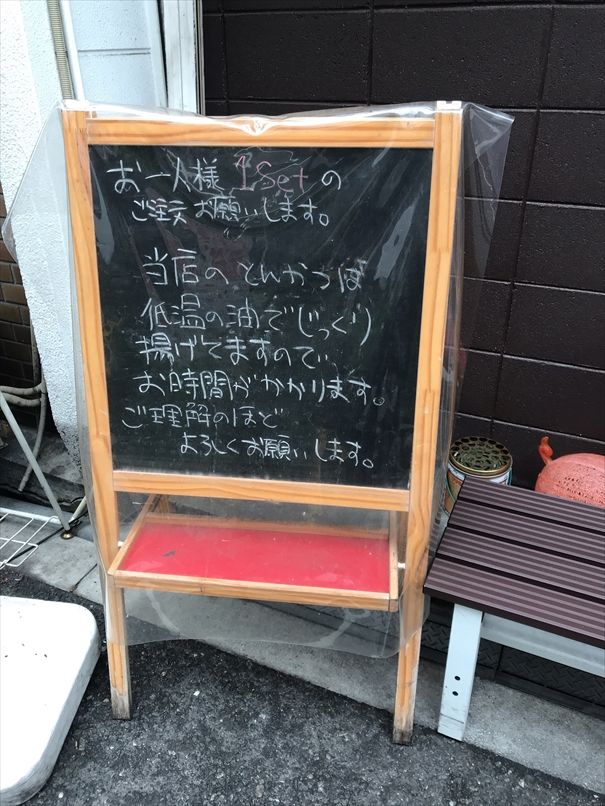 お一人様 1Setの
ご注文お願いします。
当店のとんかつは
低温の油でじっくり
揚げてますので、
お時間がかかります。
ご理解のほど
よろしくお願いします。